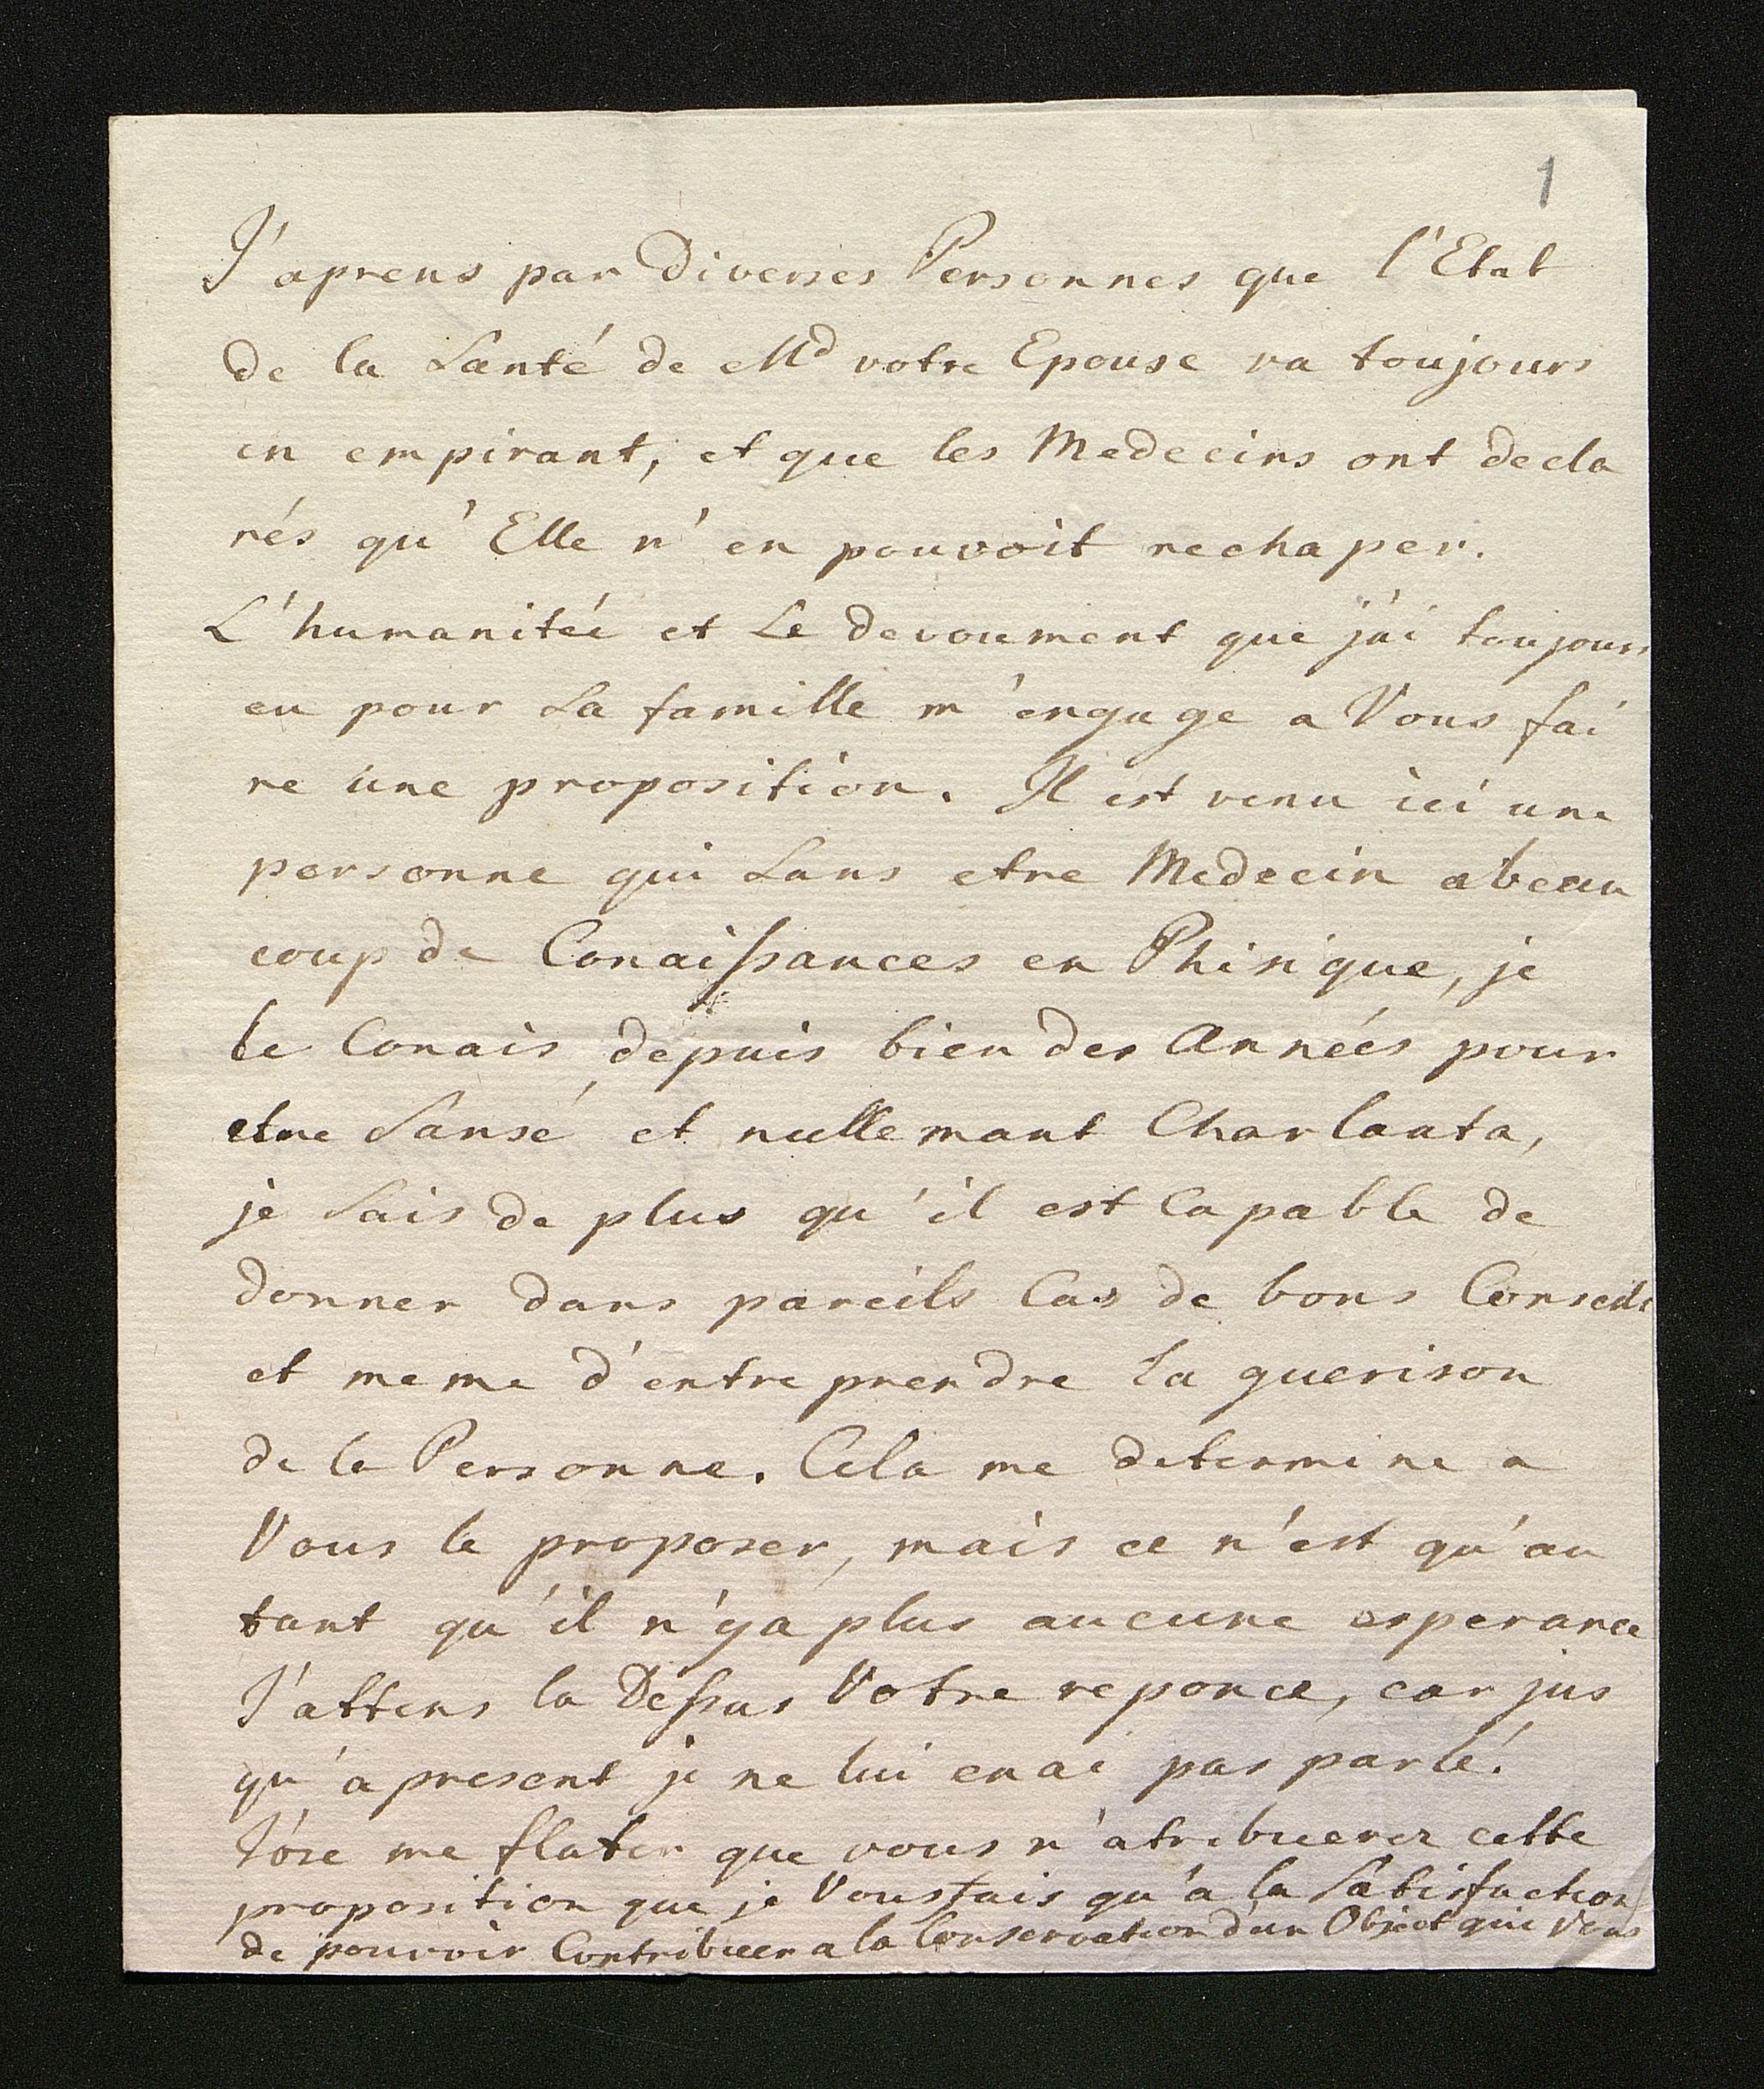 1
J'aprens par Diverses Personnes que l'Etat
de la Santé de Md votre Epouse va toujours
en empirant, et que les Medecins ont decla
rés qu'Elle n'en pouvoit rechaper.
L'humanitée et Le devoument que j'ai toujours
eu pour La famille m'engage a Vous fai
re une proposition. Il est venu ici une
personne qui Sans etre Medecin a beau
coup de Conaissances en Phisique, je
le Conais depuis bien des Années pour
etre Sansé et nullemant Charlanta,
je Sais de plus qu'il est Capable de
donner dans pareils Cas de bons Conseils
et meme d'entreprendre la guerison
de la Personne. Cela me determine a
Vous le proposer, mais ce n'est qu'au
tant qu'il n'ya plus aucune esperance
J'attens la Dessus Votre reponce, car jus
qu'a present je ne lui enai pas parlé.
J'ose me flater que vous n'atribuerez cette
proposition que je Vous fais qu'a la Satisfaction
de pouvoir Contribuer a la Conservation d'un Object qui Vous